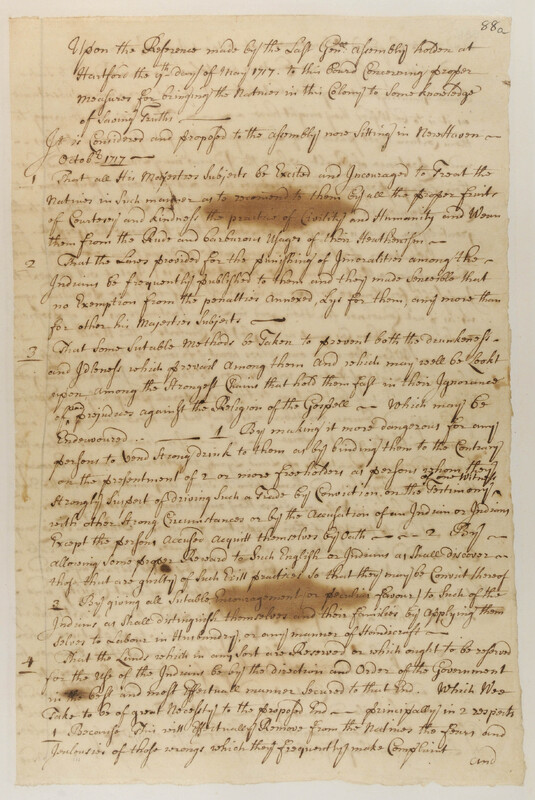 88a
Upon the Reference made by the Last Gen:ll Assembly holden at
Hartford the 9th day of May 1717. to this board Concerning proper
measures for bringing the Natives in this Colony to Some knowledge
of Saving Truths
It is Considered and proposed to the Assembly now Sitting in Newhaven
Octobr 1717
1 That all His Majesties Subjects be Excited and Incouraged to Treat the
Natives in Such manner as to recomend to them by all the proper fruits
of Courtesy and kindness the practice of Civility and Humanity and Wean
them from the Rude and barbarous Usages of their Heathenism
2 That the Laws provided for the punishing of Imoralities among the
Indians be frequently published to them and they made Sencible that
no Exemption from the penalties Annexed, Lys for them, any more than
for other his Majesties Subjects
3 That Some Sutable Methods be Taken to prevent both the drunkeness
and Idleness which prevail Among them And which may well be Lookt
upon Among the Strongest Chains that hold them fast in their Ignorance
of and prejudices against the Religion of the Gospell Which may be
Endeavoured 1 By making it more dangerous for any
persons to Vend Strong drink to them as by binding them to the Contrary
on the presentment of 2 or more freeholders as persons whom they
Strongly Suspect of driving Such a Trade by Conviction on the Testimony of one Witness
with other Strong Circumstances or by the Accusation of an Indian or Indians
Except the persons Accused Acquitt themselves by Oath 2 By
allowing Some proper Reward to Such English or Indians as Shall discover
those that are guilty of Such Evill practices So that they may be Convict thereof
3 By giving all Sutable Encouragement (or peculiar favour) to Such of the
Indians as Shall distinguish themselves and their families by Applying them
Selves to Labour in Husbendry, or any manner of Handicraft
4 That the Lands which in any Sort are Reserved or which ought to be reserved
for the Use of the Indians be by the direction and Order of the Government
in the best and most Effectuall manner Secured to that End. Which Wee
Take to be of great Necessity to the proposed End principally in 2 respects
1 Because This will Effectually Remove From the Natives the fears and
Jealousies of those wrongs which they frequently make Complaint
and